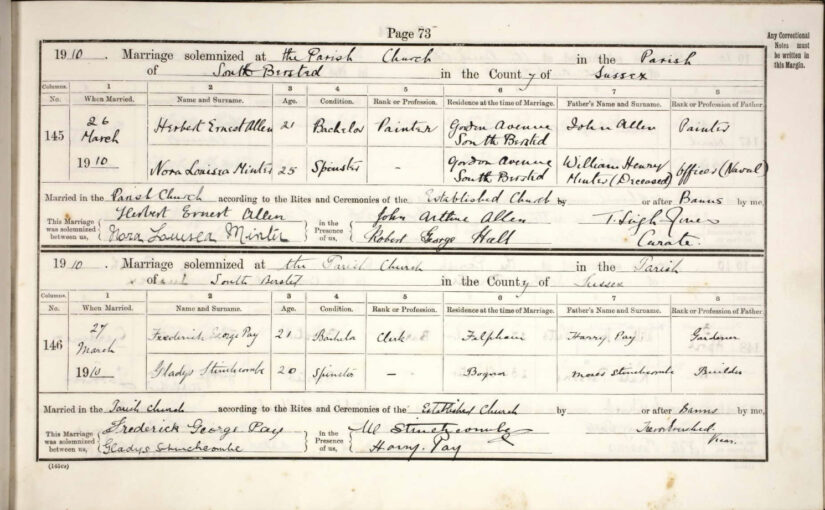 Page 73
Any Correctional
Notes must
be written in
this Margin.
1910. Marriage solemnized at the Parish Church in the Parish
of South Bersted in the County of Sussex
Columns. 1 2 3 4 5 6 7 8
No. When Married. Name and Surname. Age. Condition. Rank or Profession. Residence at the time of Marriage. Father's Name and Surname. Rank or Profession of Father.
145 26 March 1910 Herbert Ernest Allen 21 Bachelor Painter Gordon Avenue South Bersted John Allen Painter
Nora Louisea Minter 25 Spinster – Gordon Avenue South Bersted William Henry Minter (Deceased) Officer (Naval)
Married in the Parish Church according to the Rites and Ceremonies of the Established Church by or after Banns by me,
This Marriage was solemnized between us, Herbert Ernest Allen in the Presence of us, John Arthur Allen T. Leigh
Nora Louisea Minter Robert George Hall Curate.
1910. Marriage solemnized at the Parish Church in the Parish
of South Bersted in the County of Sussex
Columns. 1 2 3 4 5 6 7 8
No. When Married. Name and Surname. Age. Condition. Rank or Profession. Residence at the time of Marriage. Father's Name and Surname. Rank or Profession of Father.
146 27 March 1910 Frederick George Pay 21 Bachelor Clerk Felpham Harry Pay Gardener
Gladys Stinchcombe 20 Spinster – Bognor Moses Stinchcombe Builder
Married in the Parish Church according to the Rites and Ceremonies of the Established Church by or after Banns by me,
This Marriage was solemnized between us, Frederick George Pay in the Presence of us, M Stinchcombe
Gladys Stinchcombe Harry Pay Vicar.